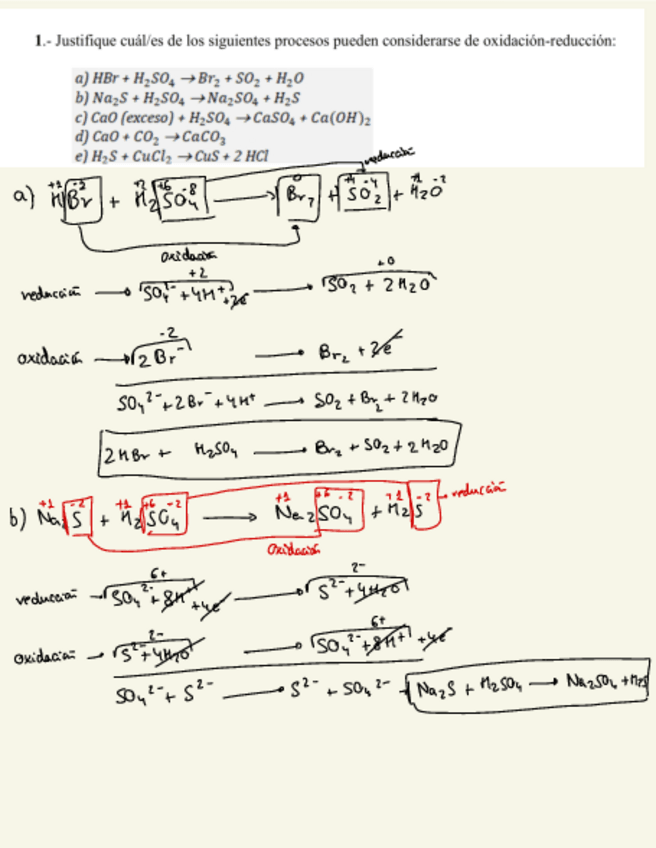 1.- Justifique cuál/es de los siguientes procesos pueden considerarse de oxidación-reducción:
a) HBr + H₂SO₄ → Br₂ + SO₂ + H₂O
b) Na₂S + H₂SO₄ → Na₂SO₄ + H₂S
c) CaO (exceso) + H₂SO₄ → CaSO₄ + Ca(OH)₂
d) CaO + CO₂ → CaCO₃
e) H₂S + CuCl₂ → CuS + 2 HCl
reducción
+1 +2 +6 -8 0 +4 -4 +1 -2
a) HBr + H₂SO₄ → Br₂ + SO₂ + H₂O
oxidación
+2 +0
reducción → SO₄²⁻ + 4H⁺ + 2e⁻ → SO₂ + 2H₂O
-2
oxidación → 2Br⁻ → Br₂ + 2e⁻
SO₄²⁻ + 2Br⁻ + 4H⁺ → SO₂ + Br₂ + 2H₂O
2HBr + H₂SO₄ → Br₂ + SO₂ + 2H₂O
+1 -2 +1 +6 -2 +1 +6 -2 +1 -2 reducción
b) Na₂S + H₂SO₄ → Na₂SO₄ + H₂S
oxidación
6+ 2-
reducción → SO₄²⁻ + 8H⁺ + 4e⁻ → S²⁻ + 4H₂O
2- 6+
oxidación → S²⁻ + 4H₂O → SO₄²⁻ + 8H⁺ + 4e⁻
SO₄²⁻ + S²⁻ → S²⁻ + SO₄²⁻ Na₂S + H₂SO₄ → Na₂SO₄ + H₂S